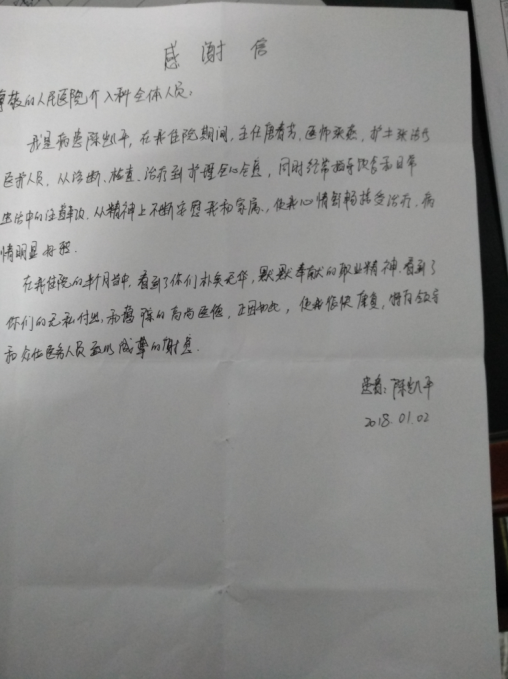 感谢信
尊敬的人民医院介入科全体人员:
我是病患陈凯平,在我住院期间,主任唐青,医师,护士
医护人员,从诊断、检查、治疗到护理全心全意,同时经常指导饮食和日常
生活中的注意事项,从精神上不断安慰我和家属,使我心情舒畅接受治疗,病
情明显好转.
在我住院的半月当中,看到了你们朴实无华,默默奉献的职业精神.看到了
你们的无私付出,和高尚医德,正因如此,使我很快康复,
和众位医务人员致以诚挚的谢意.
患者:陈凯平
2018.01.02